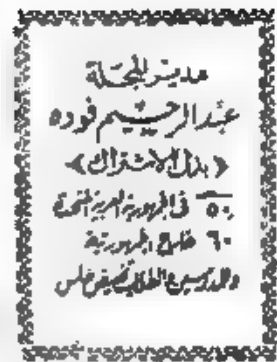 مدير المجلة
عبد الرحيم فوده
﴿ بدل الاشتراك ﴾
٥٠ في الجمهورية العربية المتحدة
٦٠ خارج الجمهورية
وللمدرسين والطلاب تخفيض خاص